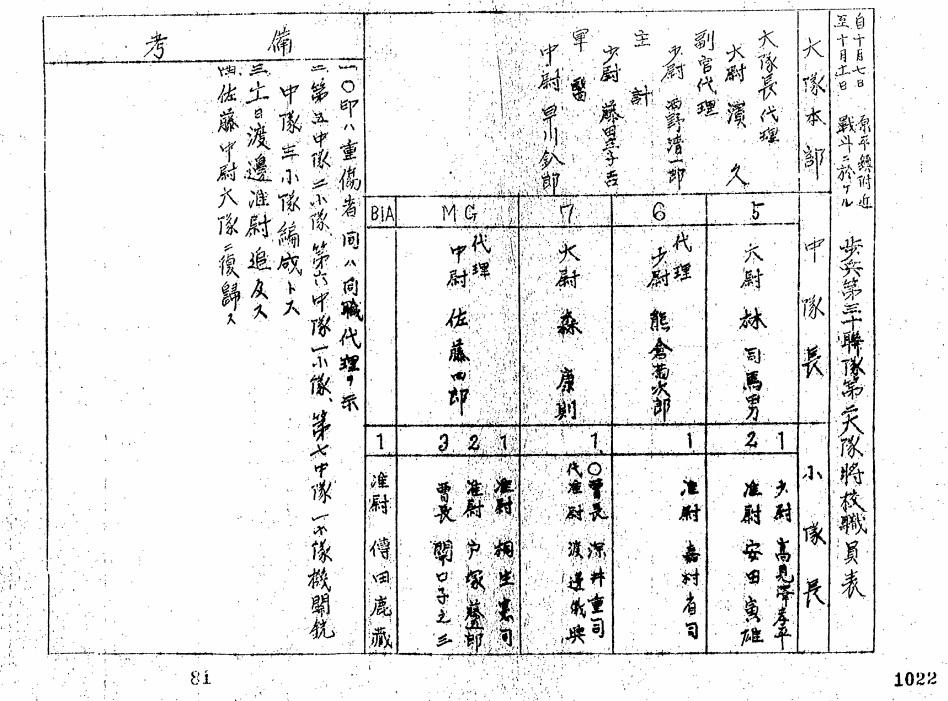 自十月七日
至十月十一日
原平鎮附近
戰斗ニ於ケル
歩兵第三十聯隊第二大隊將校職員表
大隊本部
大隊長代理
大尉 濱 久
副官代理
少尉 清一郎
主計
少尉 藤田
軍醫
中尉 早川
中隊長
5
大尉 林 司馬男
6
代理
少尉 熊倉菊次郎
7
大尉 森 康則
MG
代理
中尉 佐藤四郎
BIA
小隊長
1
少尉 高見澤孝平
2
准尉 安田寅雄
1
准尉 嘉村省司
1
〇曹長 深井重司
代准尉 渡邊
1
准尉 桐生憲司
2
准尉 戸塚
3
曹長 關口子之三
1
准尉 傳田鹿藏
備考
一、〇印ハ重傷者 同ハ同職代理ヲ示
二、第五中隊二小隊、第六中隊一小隊、第七中隊一小隊、機關銃
中隊三小隊編成トス
三、十一日渡邊准尉追及ス
四、佐藤中尉大隊ニ復歸ス
81
1022